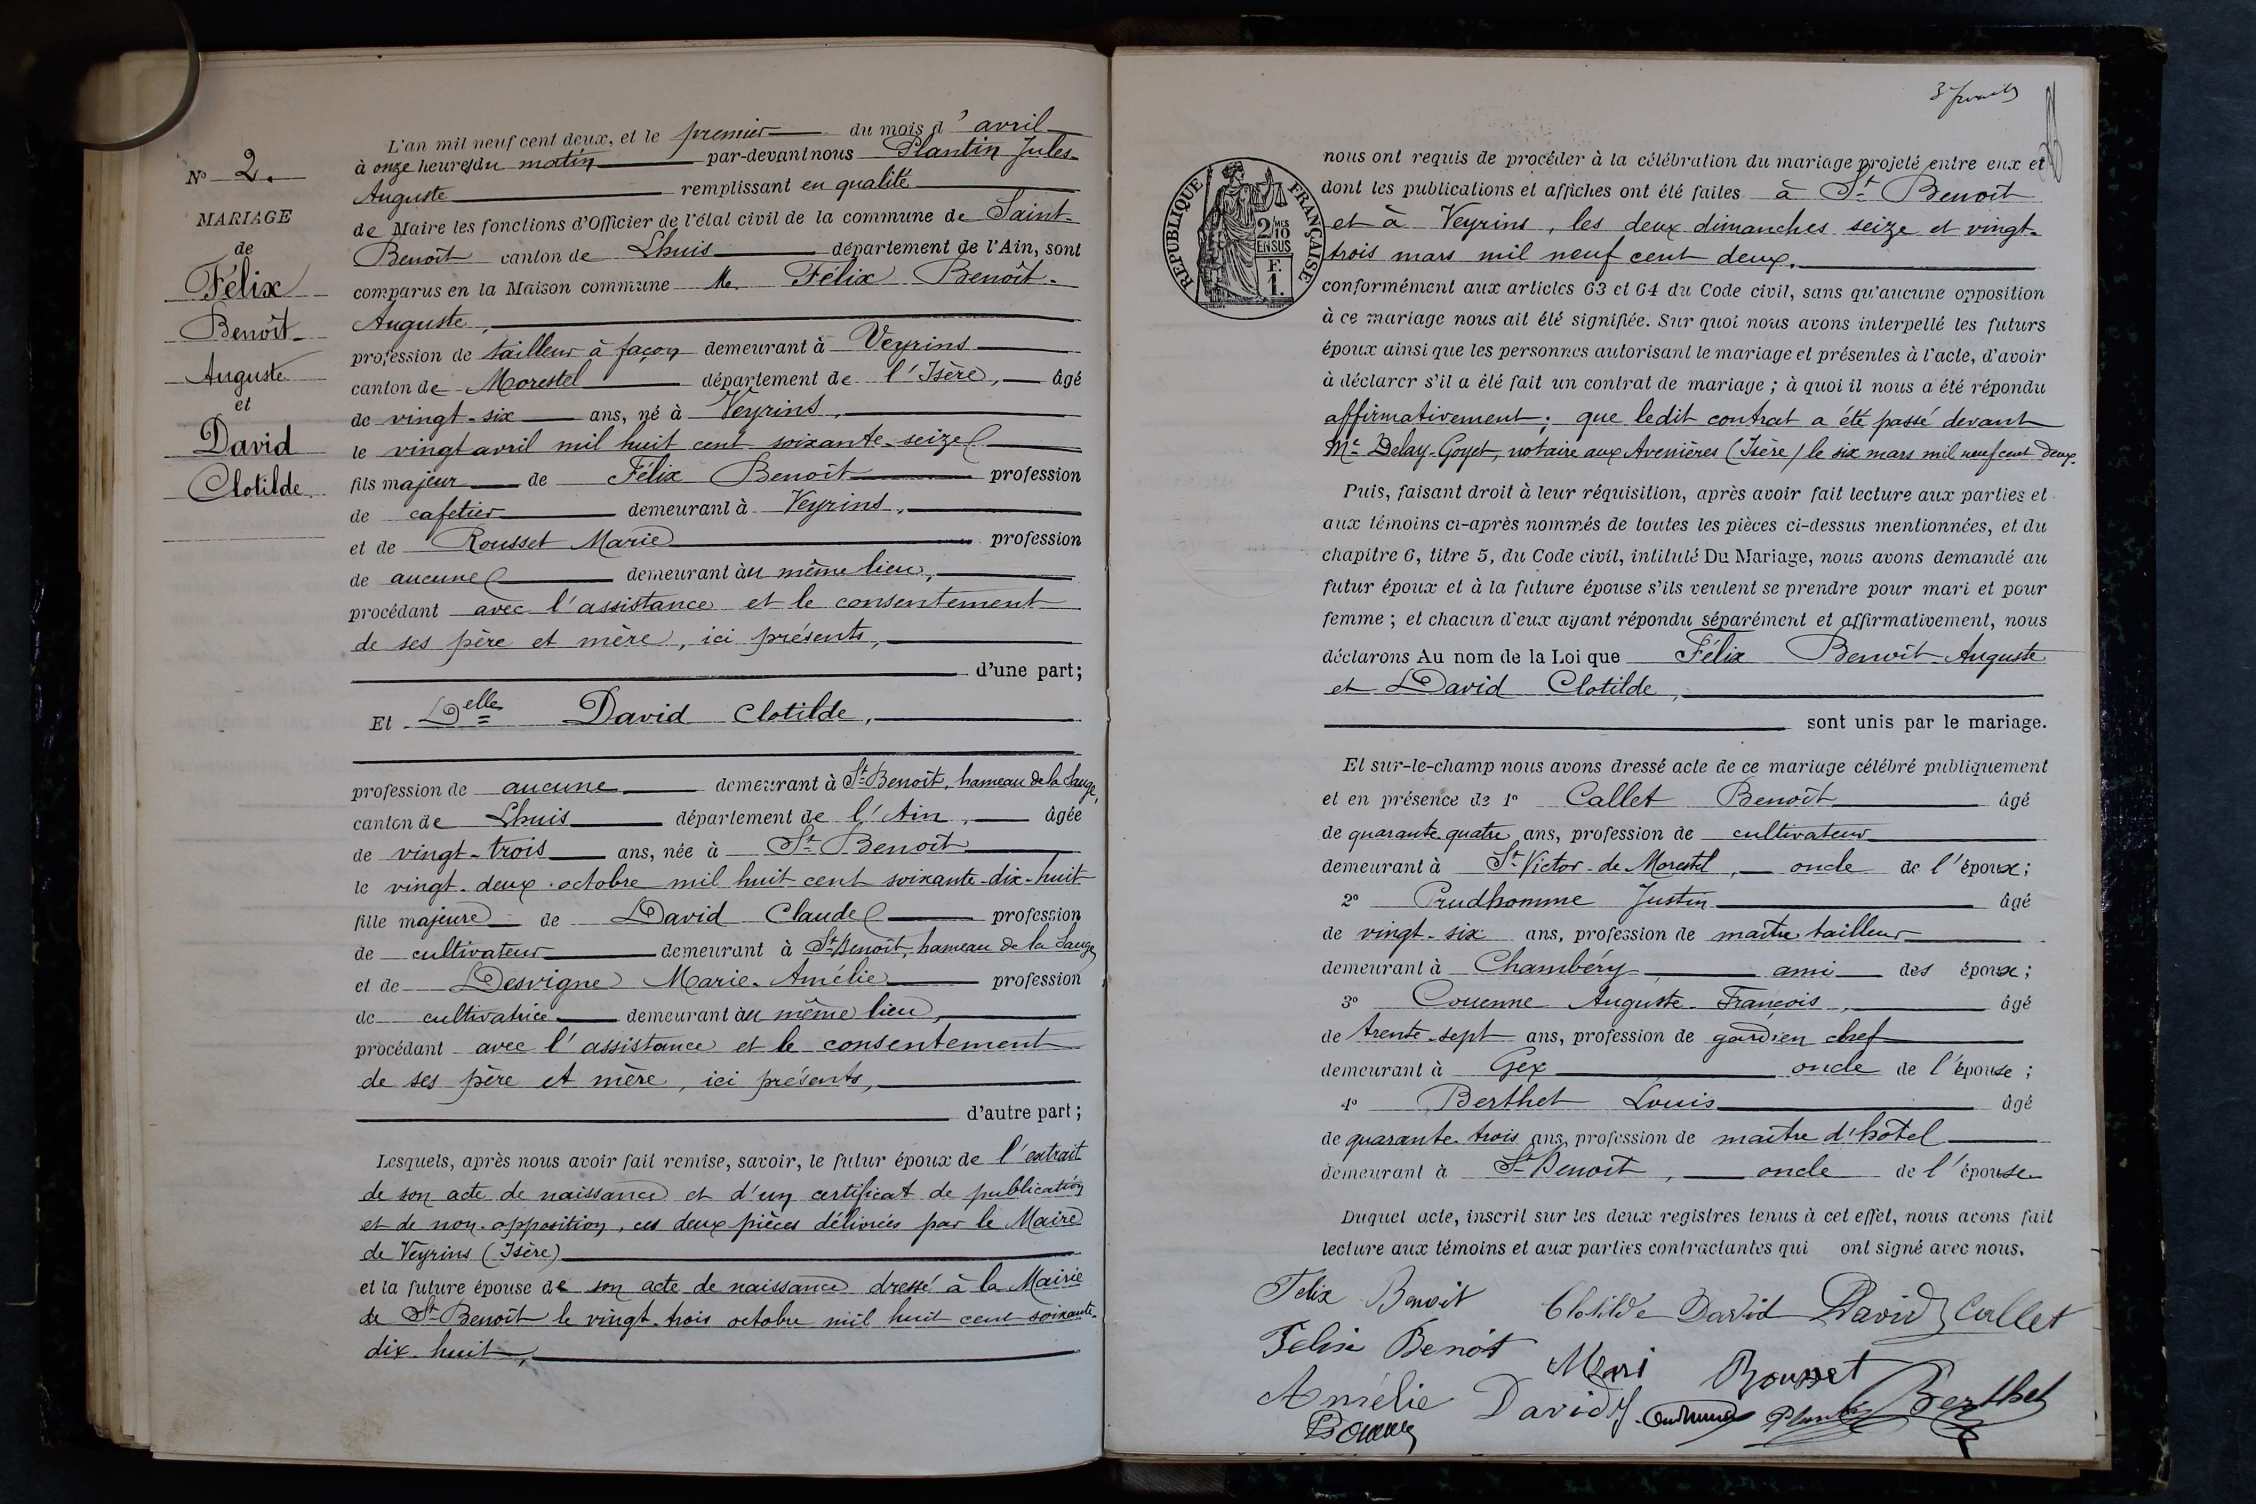 N° 2.
MARIAGE
de
Félix
Benoît-
Auguste
et
David
Clotilde
L'an mil neuf cent deux, et le premier du mois d'avril
à onze heures du matin par-devant nous Plantin Jules-
Auguste remplissant en qualité
de Maire les fonctions d'Officier de l'état civil de la commune de Saint-
Benoît canton de Lhuis département de l'Ain, sont
comparus en la Maison commune M. Félix Benoît-
Auguste,
profession de tailleur à façon demeurant à Veyrins
canton de Morestel département de l'Isère, âgé
de vingt-six ans, né à Veyrins,
le vingt avril mil huit cent soixante-seize
fils majeur de Félix Benoît profession
de cafetier demeurant à Veyrins,
et de Rousset Marie profession
de aucune demeurant àu même lieu,
procédant avec l'assistance et le consentement
de ses père et mère, ici présents,
d'une part;
Et Delle David Clotilde,
profession de aucune demeurant à St-Benoît, hameau de la Sauge,
canton de Lhuis département de l'Ain, âgée
de vingt-trois ans, née à St-Benoît
le vingt-deux octobre mil huit cent soixante-dix-huit
fille majeure de David Claude profession
de cultivateur demeurant à St-Benoît, hameau de la Sauge
et de Desvigne Marie-Amélie profession
de cultivatrice demeurant àu même lieu,
procédant avec l'assistance et le consentement
de ses père et mère, ici présents,
d'autre part;
Lesquels, après nous avoir fait remise, savoir, le futur époux de l'extrait
de son acte de naissance et d'un certificat de publication
et de non-opposition, ces deux pièces délivrées par le Maire
de Veyrins (Isère)
et la future épouse de son acte de naissance dressé à la Mairie
de St-Benoît le vingt-trois octobre mil huit cent soixante-
dix-huit,
RÉPUBLIQUE FRANÇAISE
2/10
EN SUS
F.
1.
nous ont requis de procéder à la célébration du mariage projeté entre eux et
dont les publications et affiches ont été faites à St-Benoît
et à Veyrins, les deux dimanches seize et vingt-
trois mars mil neuf cent deux.
conformément aux articles 63 et 64 du Code civil, sans qu'aucune opposition
à ce mariage nous ait été signifiée. Sur quoi nous avons interpellé les futurs
époux ainsi que les personnes autorisant le mariage et présentes à l'acte, d'avoir
à déclarer s'il a été fait un contrat de mariage; à quoi il nous a été répondu
affirmativement; que ledit contrat a été passé devant
Me Delay-Goyet, notaire aux Avenières (Isère) le six mars mil neuf cent deux.
Puis, faisant droit à leur réquisition, après avoir fait lecture aux parties et
aux témoins ci-après nommés de toutes les pièces ci-dessus mentionnées, et du
chapitre 6, titre 5, du Code civil, intitulé Du Mariage, nous avons demandé au
futur époux et à la future épouse s'ils veulent se prendre pour mari et pour
femme; et chacun d'eux ayant répondu séparément et affirmativement, nous
déclarons Au nom de la Loi que Félix Benoît-Auguste
et David Clotilde,
sont unis par le mariage.
Et sur-le-champ nous avons dressé acte de ce mariage célébré publiquement
et en présence de 1° Callet Benoît âgé
de quarante-quatre ans, profession de cultivateur
demeurant à St-Victor-de-Morestel, oncle de l'époux;
2° Prudhomme Justin âgé
de vingt-six ans, profession de maître tailleur
demeurant à Chambéry, ami des époux;
3° Couenne Auguste-François, âgé
de trente-sept ans, profession de gardien chef
demeurant à Gex oncle de l'épouse;
4° Berthet Louis âgé
de quarante-trois ans, profession de maître d'hôtel
demeurant à St-Benoît, oncle de l'épouse
Duquel acte, inscrit sur les deux registres tenus à cet effet, nous avons fait
lecture aux témoins et aux parties contractantes qui ont signé avec nous.
Felix Benoit Clotilde David David Callet
Felix Benoit Mari Rousset
Amélie David Plantin Berthet